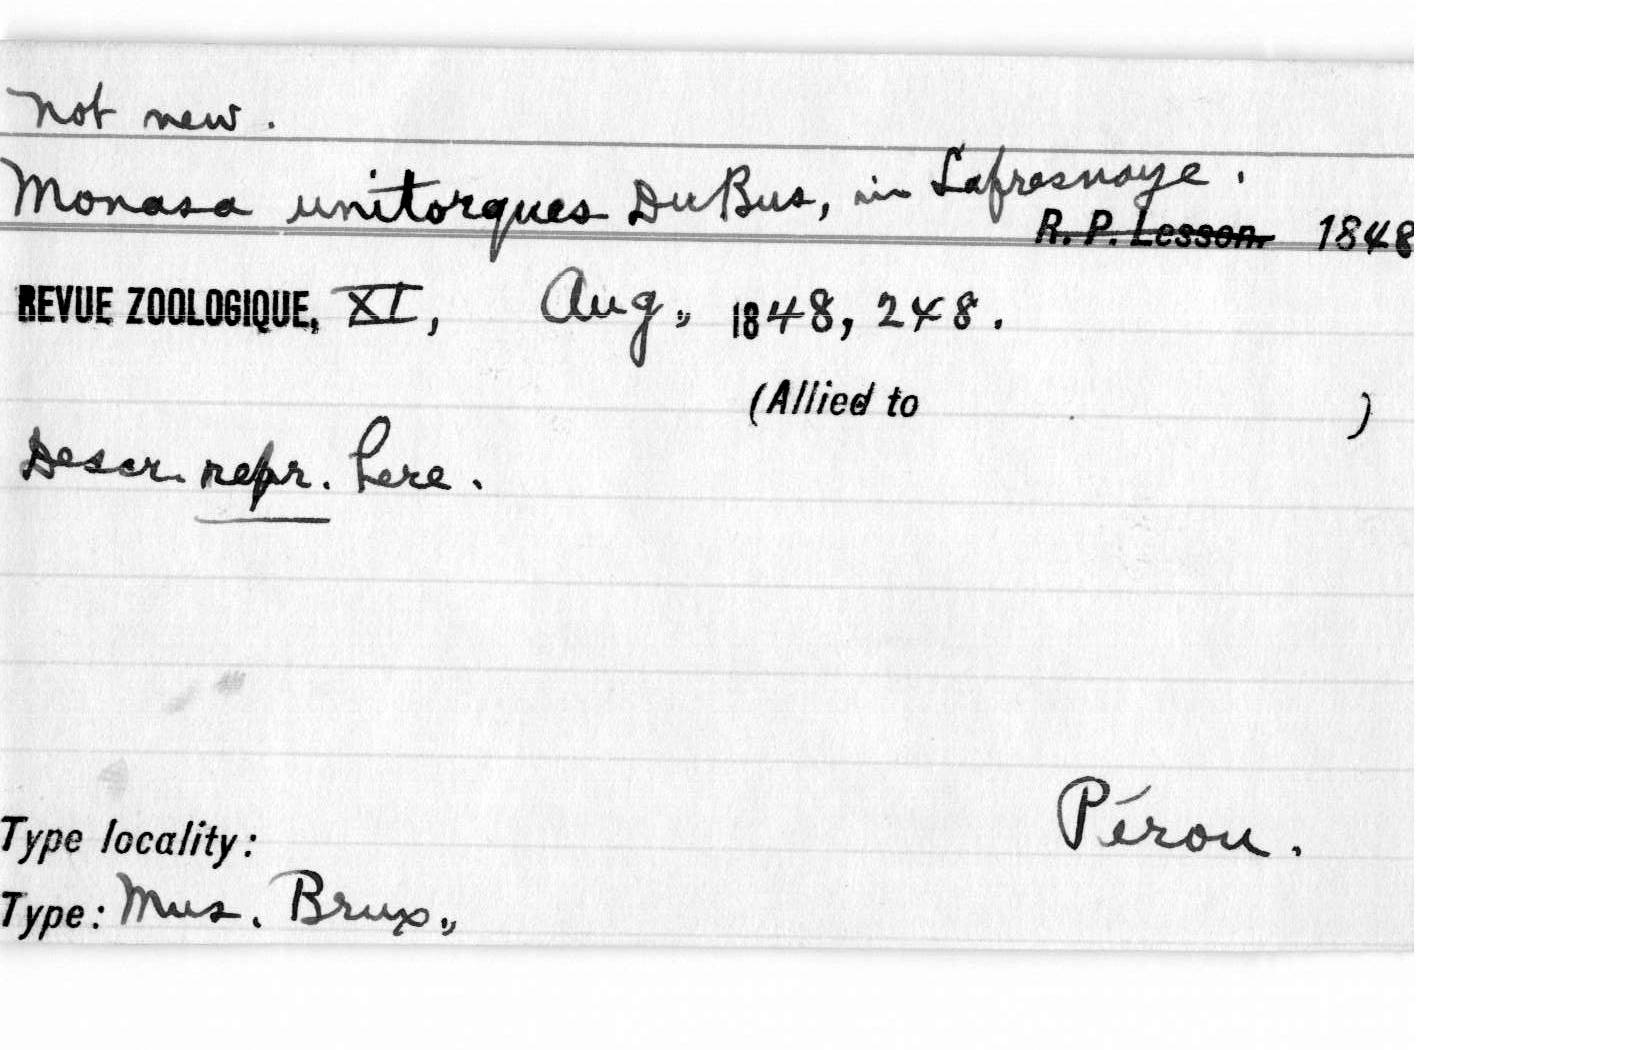 Not new.
Monasa unitorques DuBus, in Lafresnaye.
R. P. Lesson. 1848
REVUE ZOOLOGIQUE, XI, Aug., 1848, 248.
(Allied to )
Descr. repr. here.
Pérou.
Type locality:
Type: Mus. Brux.,